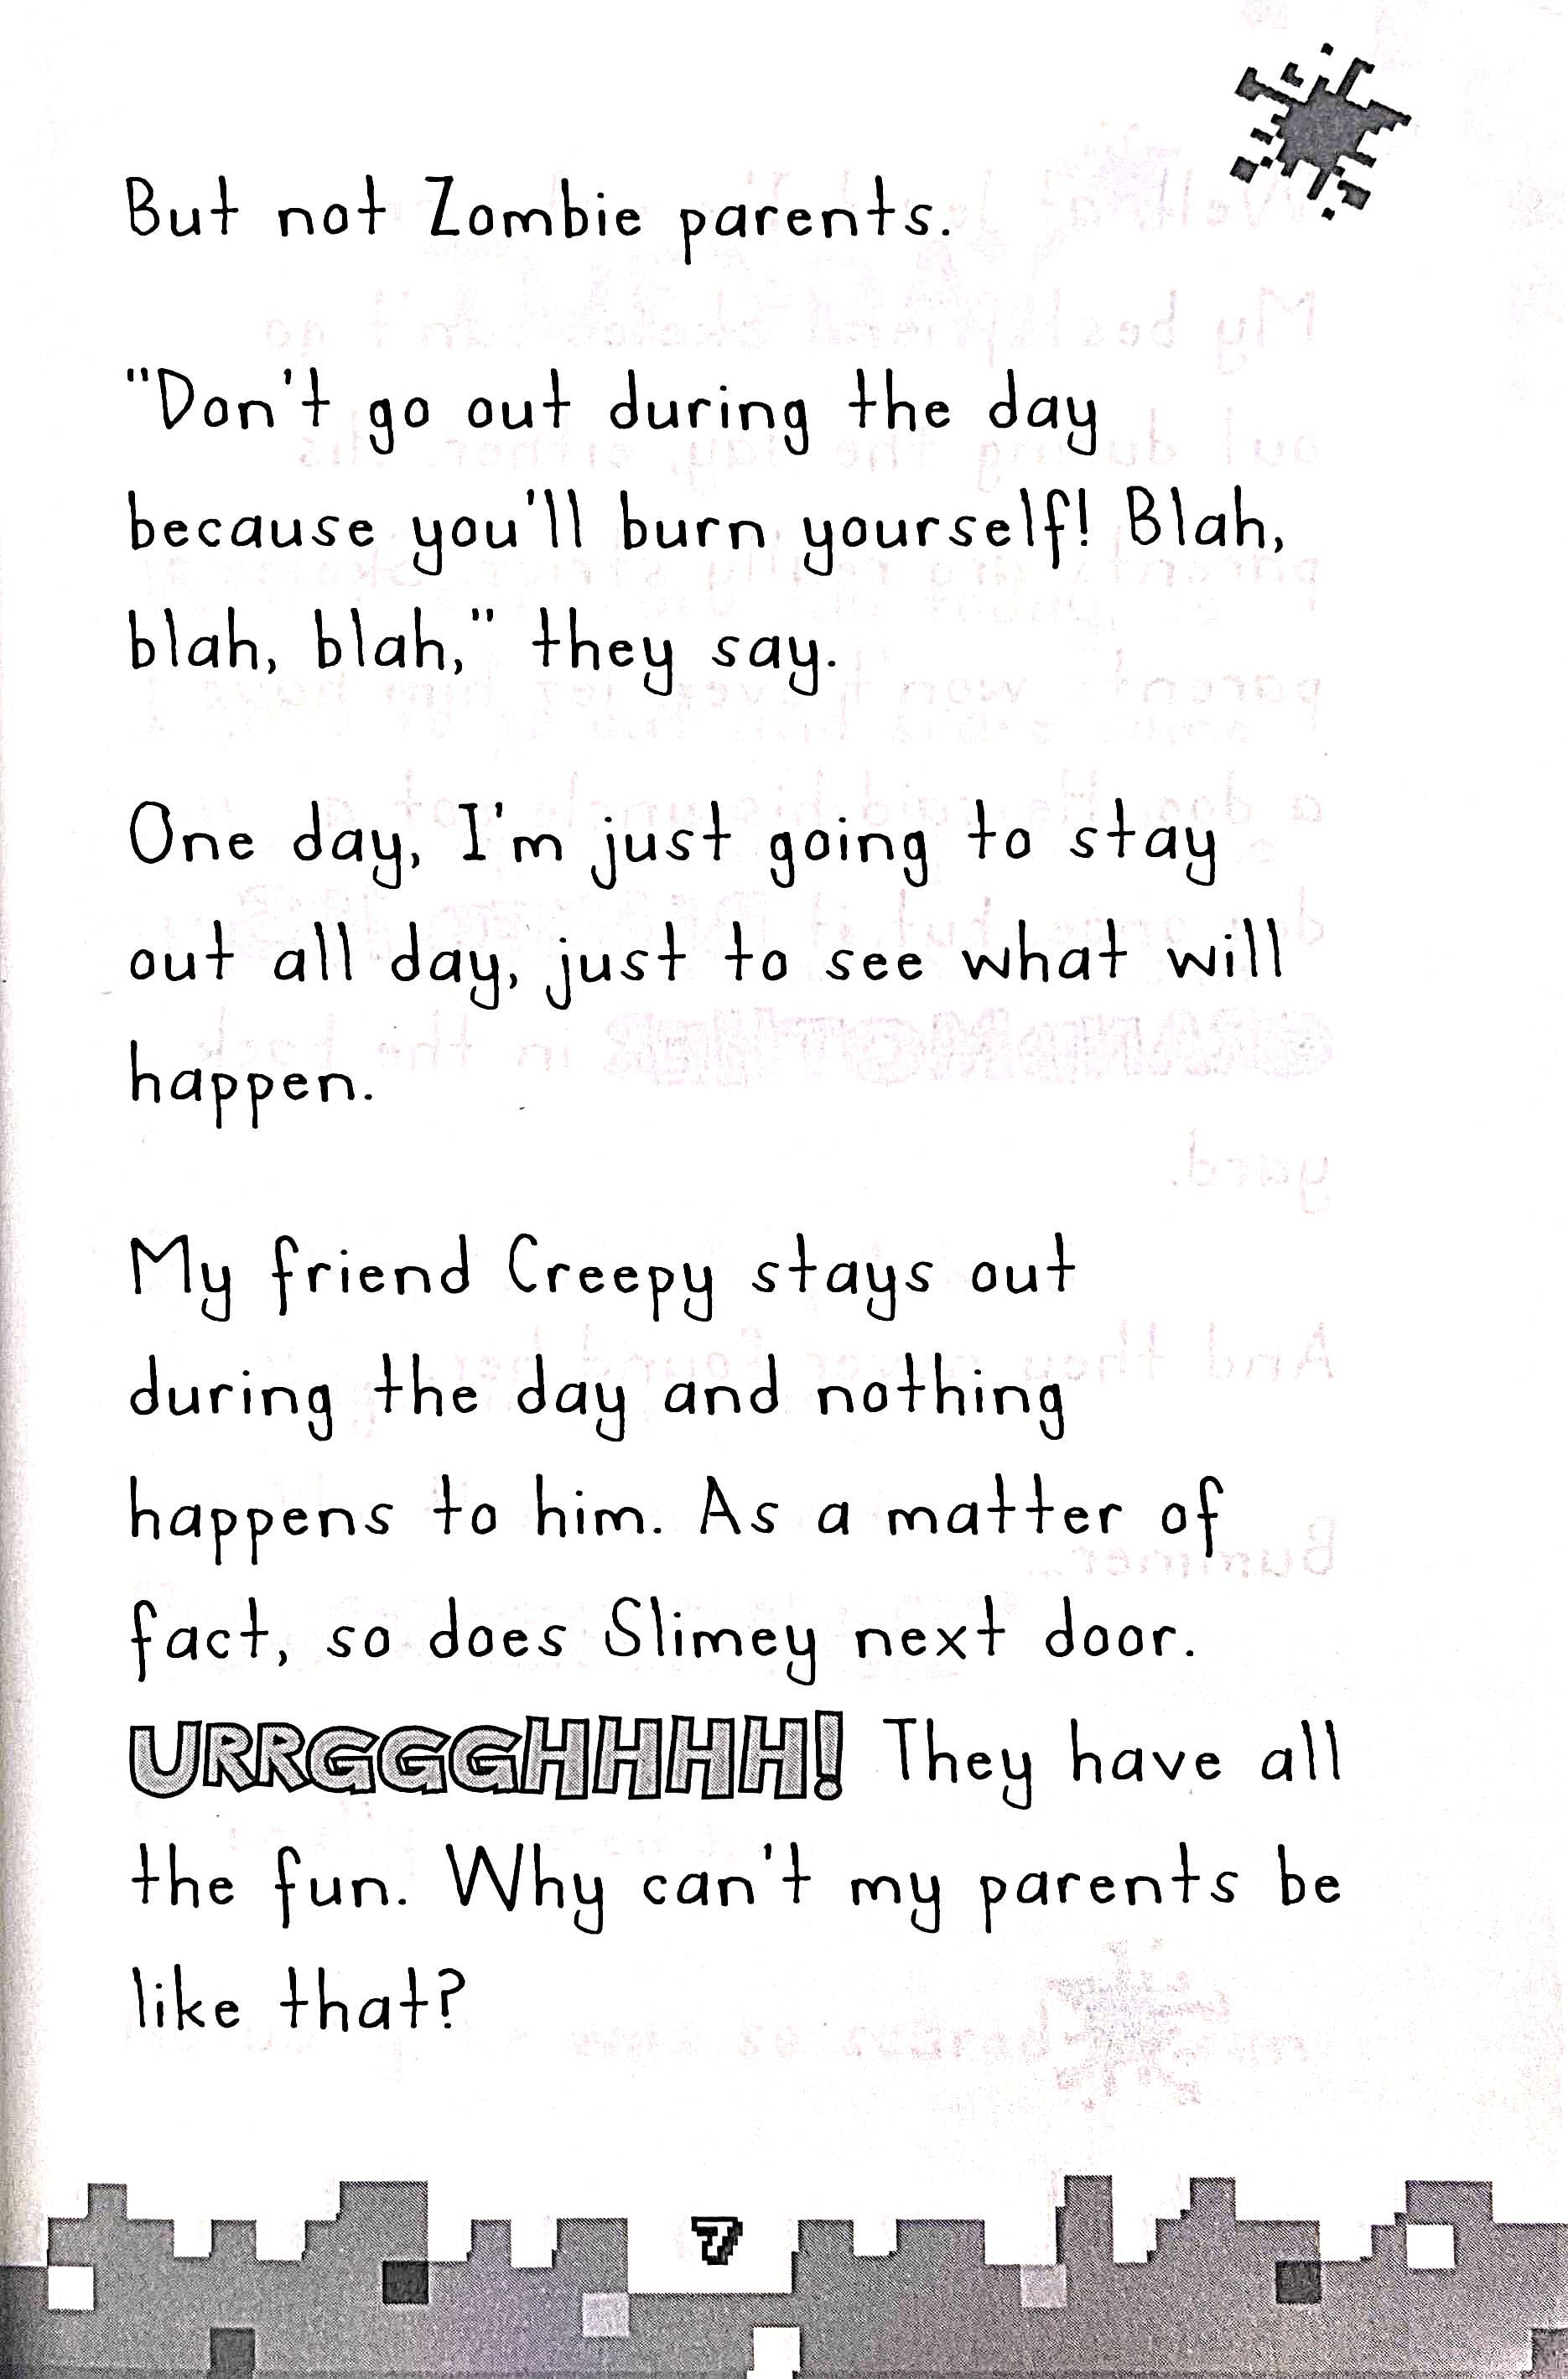 But not Zombie parents.
"Don't go out during the day
because you'll burn yourself! Blah,
blah, blah," they say.
One day, I'm just going to stay
out all day, just to see what will
happen.
My friend Creepy stays out
during the day and nothing
happens to him. As a matter of
fact, so does Slimey next door.
URRGGGHHHH! They have all
the fun. Why can't my parents be
like that?
7